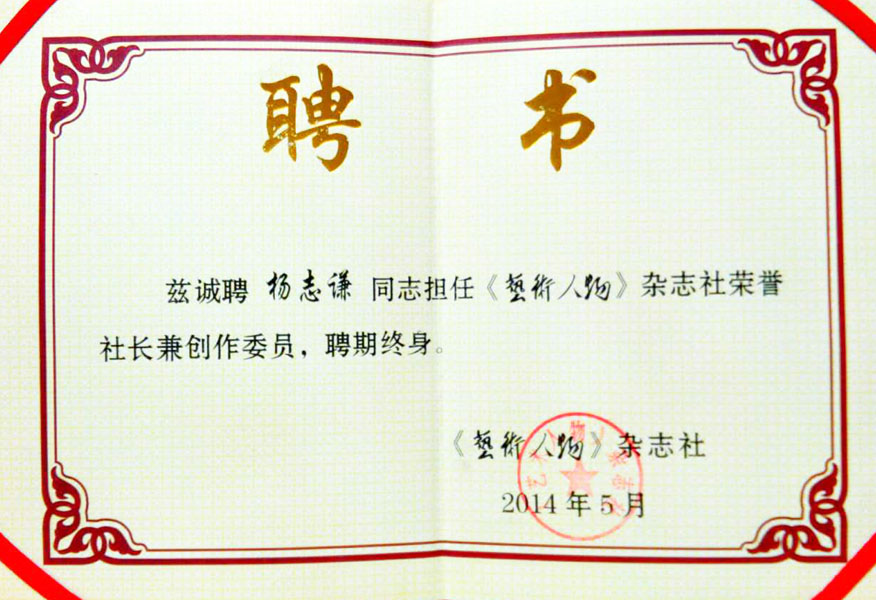 聘书
兹诚聘 杨志谦 同志担任《藝術人物》杂志社荣誉
社长兼创作委员，聘期终身。
《藝術人物》杂志社
2014年5月
艺术人物杂志社